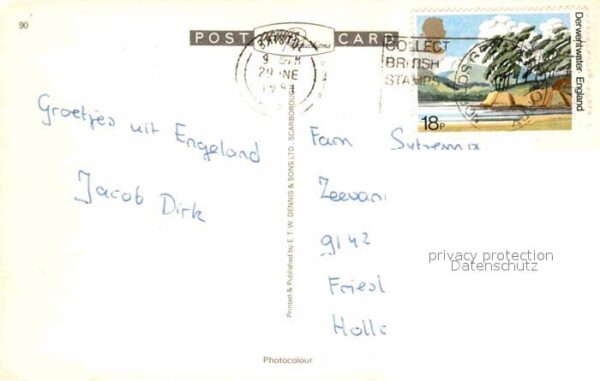 90
POST CARD
9 PM
29 JNE
COLLECT
BRITISH
STAMPS
Derwentwater England
18P
Groetjes uit Engeland
Jacob Dirk
Printed & Published by E. T. W. DENNIS & SONS LTD., SCARBOROUGH
Fam
Zeevan
9142
Friesl
Holl
privacy protection
Datenschutz
Photocolour